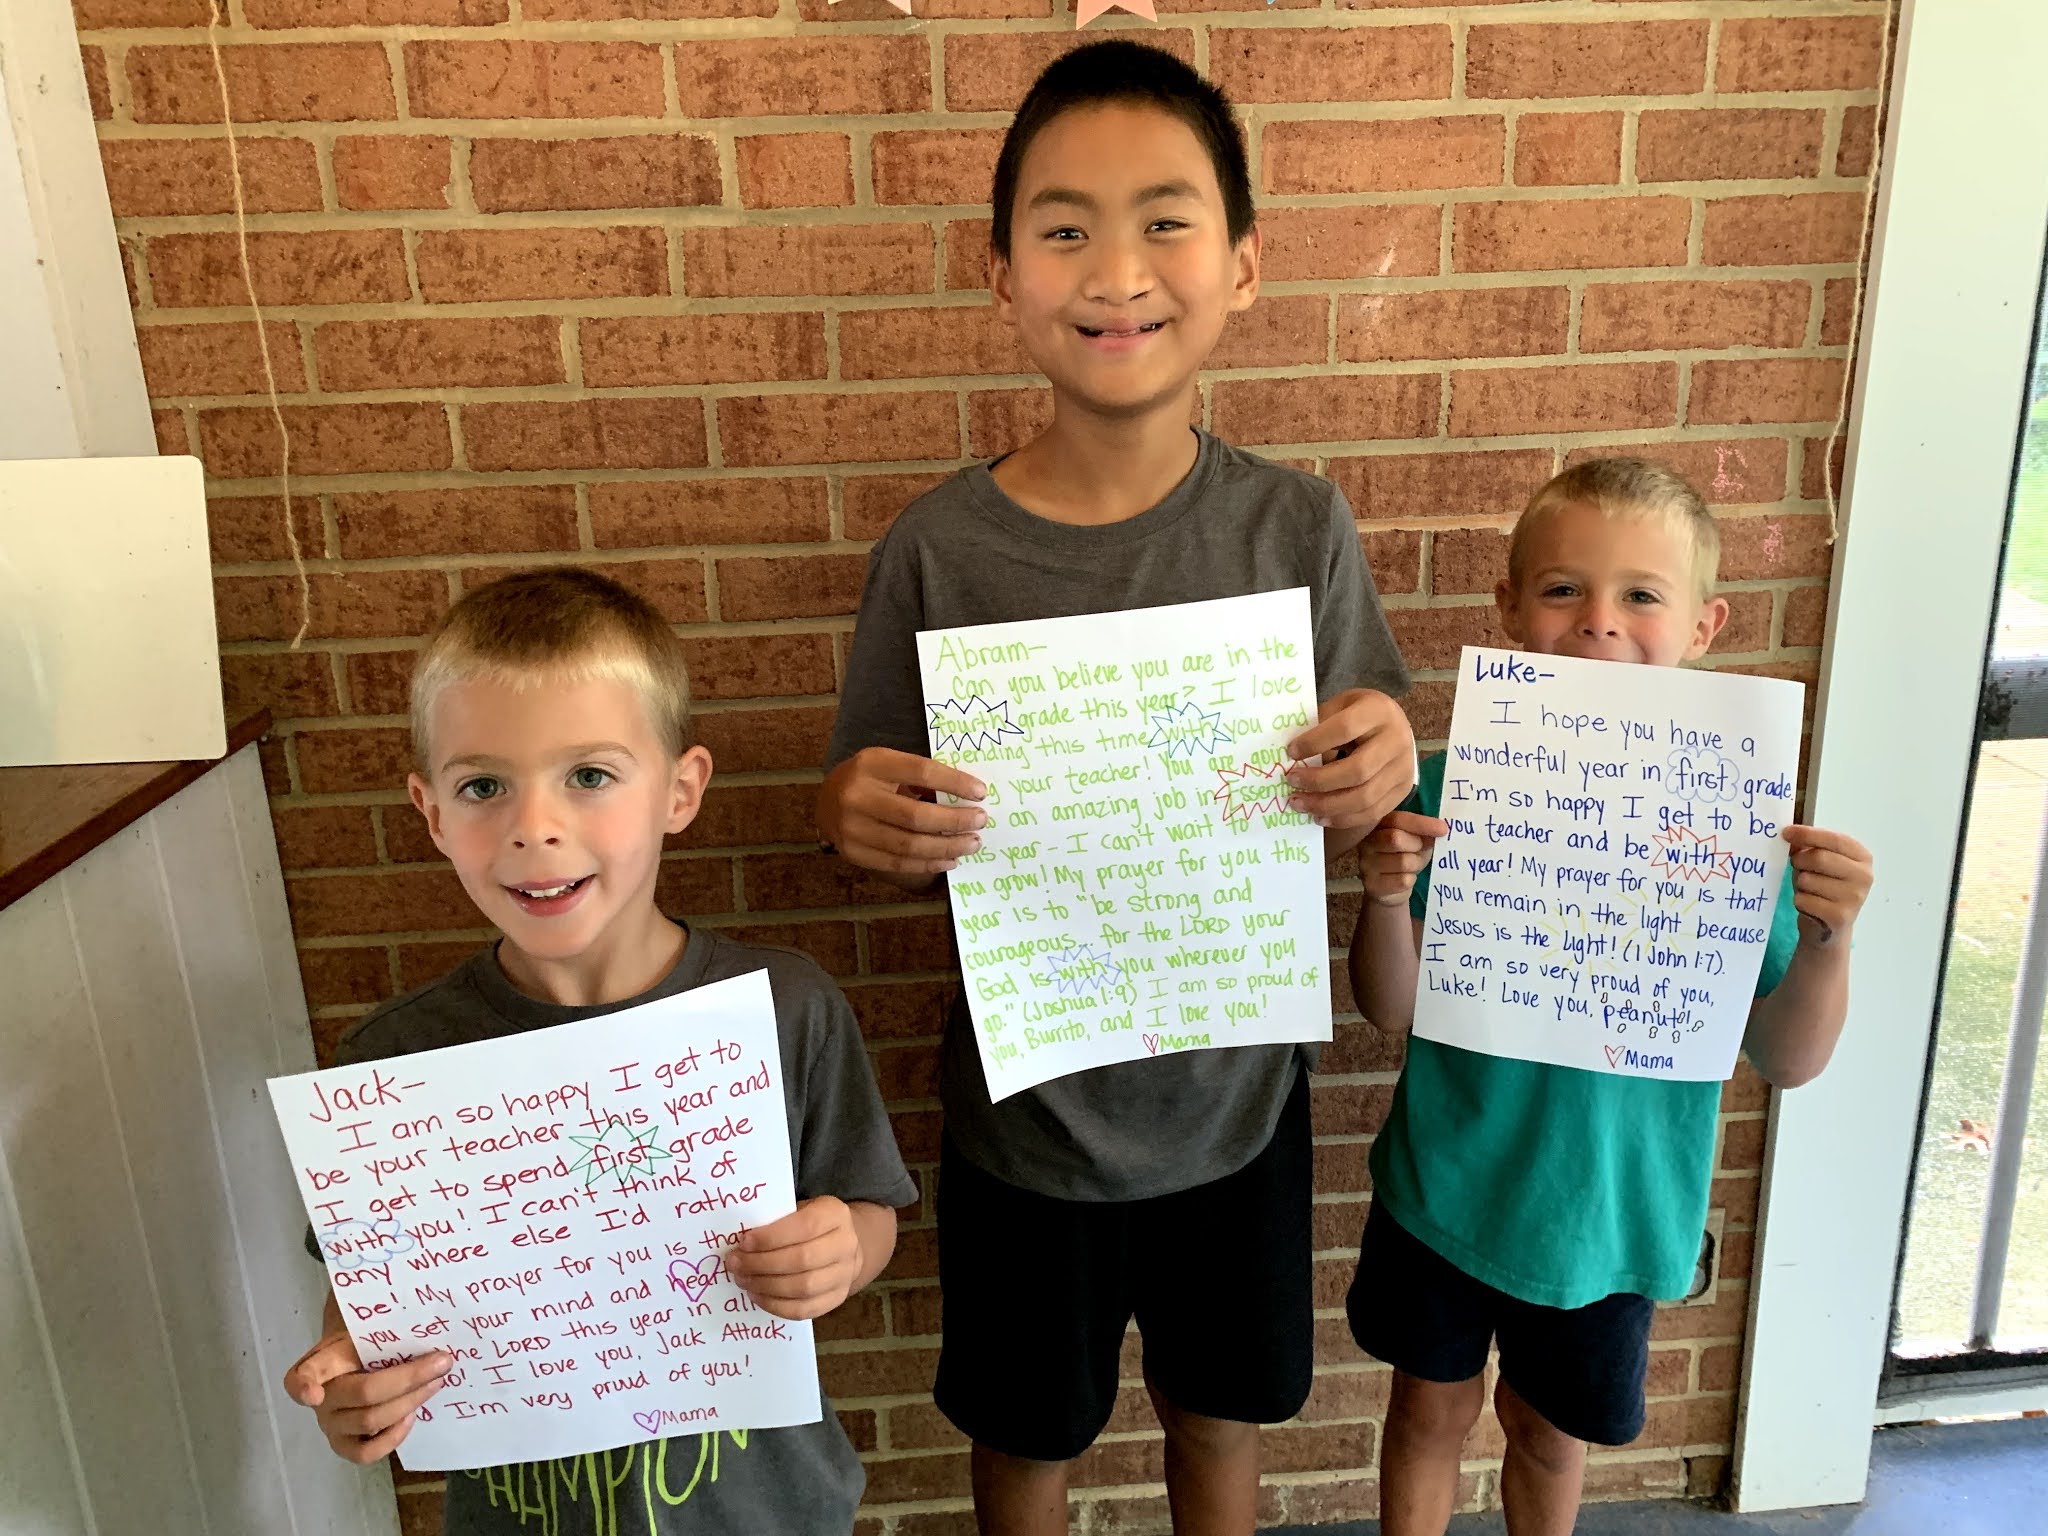 Jack-
I am so happy I get to
be your teacher this year and
I get to spend first grade
with you! I can't think of
any where else I'd rather
be! My prayer for you is that
you set your mind and heart
the LORD this year in all
do! I love you, Jack Attack,
I'm very proud of you!
♡Mama
Abram-
Can you believe you are in the
fourth grade this year? I love
spending this time with you and
your teacher! You are going
an amazing job in
this year - I can't wait to watch
you grow! My prayer for you this
year is to "be strong and
courageous... for the LORD your
God is with you wherever you
go." (Joshua 1:9) I am so proud of
you, Burrito, and I love you!
♡Mama
Luke-
I hope you have a
wonderful year in first grade.
I'm so happy I get to be
you teacher and be with you
all year! My prayer for you is that
you remain in the light because
Jesus is the Light! (1 John 1:7).
I am so very proud of you,
Luke! Love you, peanut!
♡Mama
CHAMPION